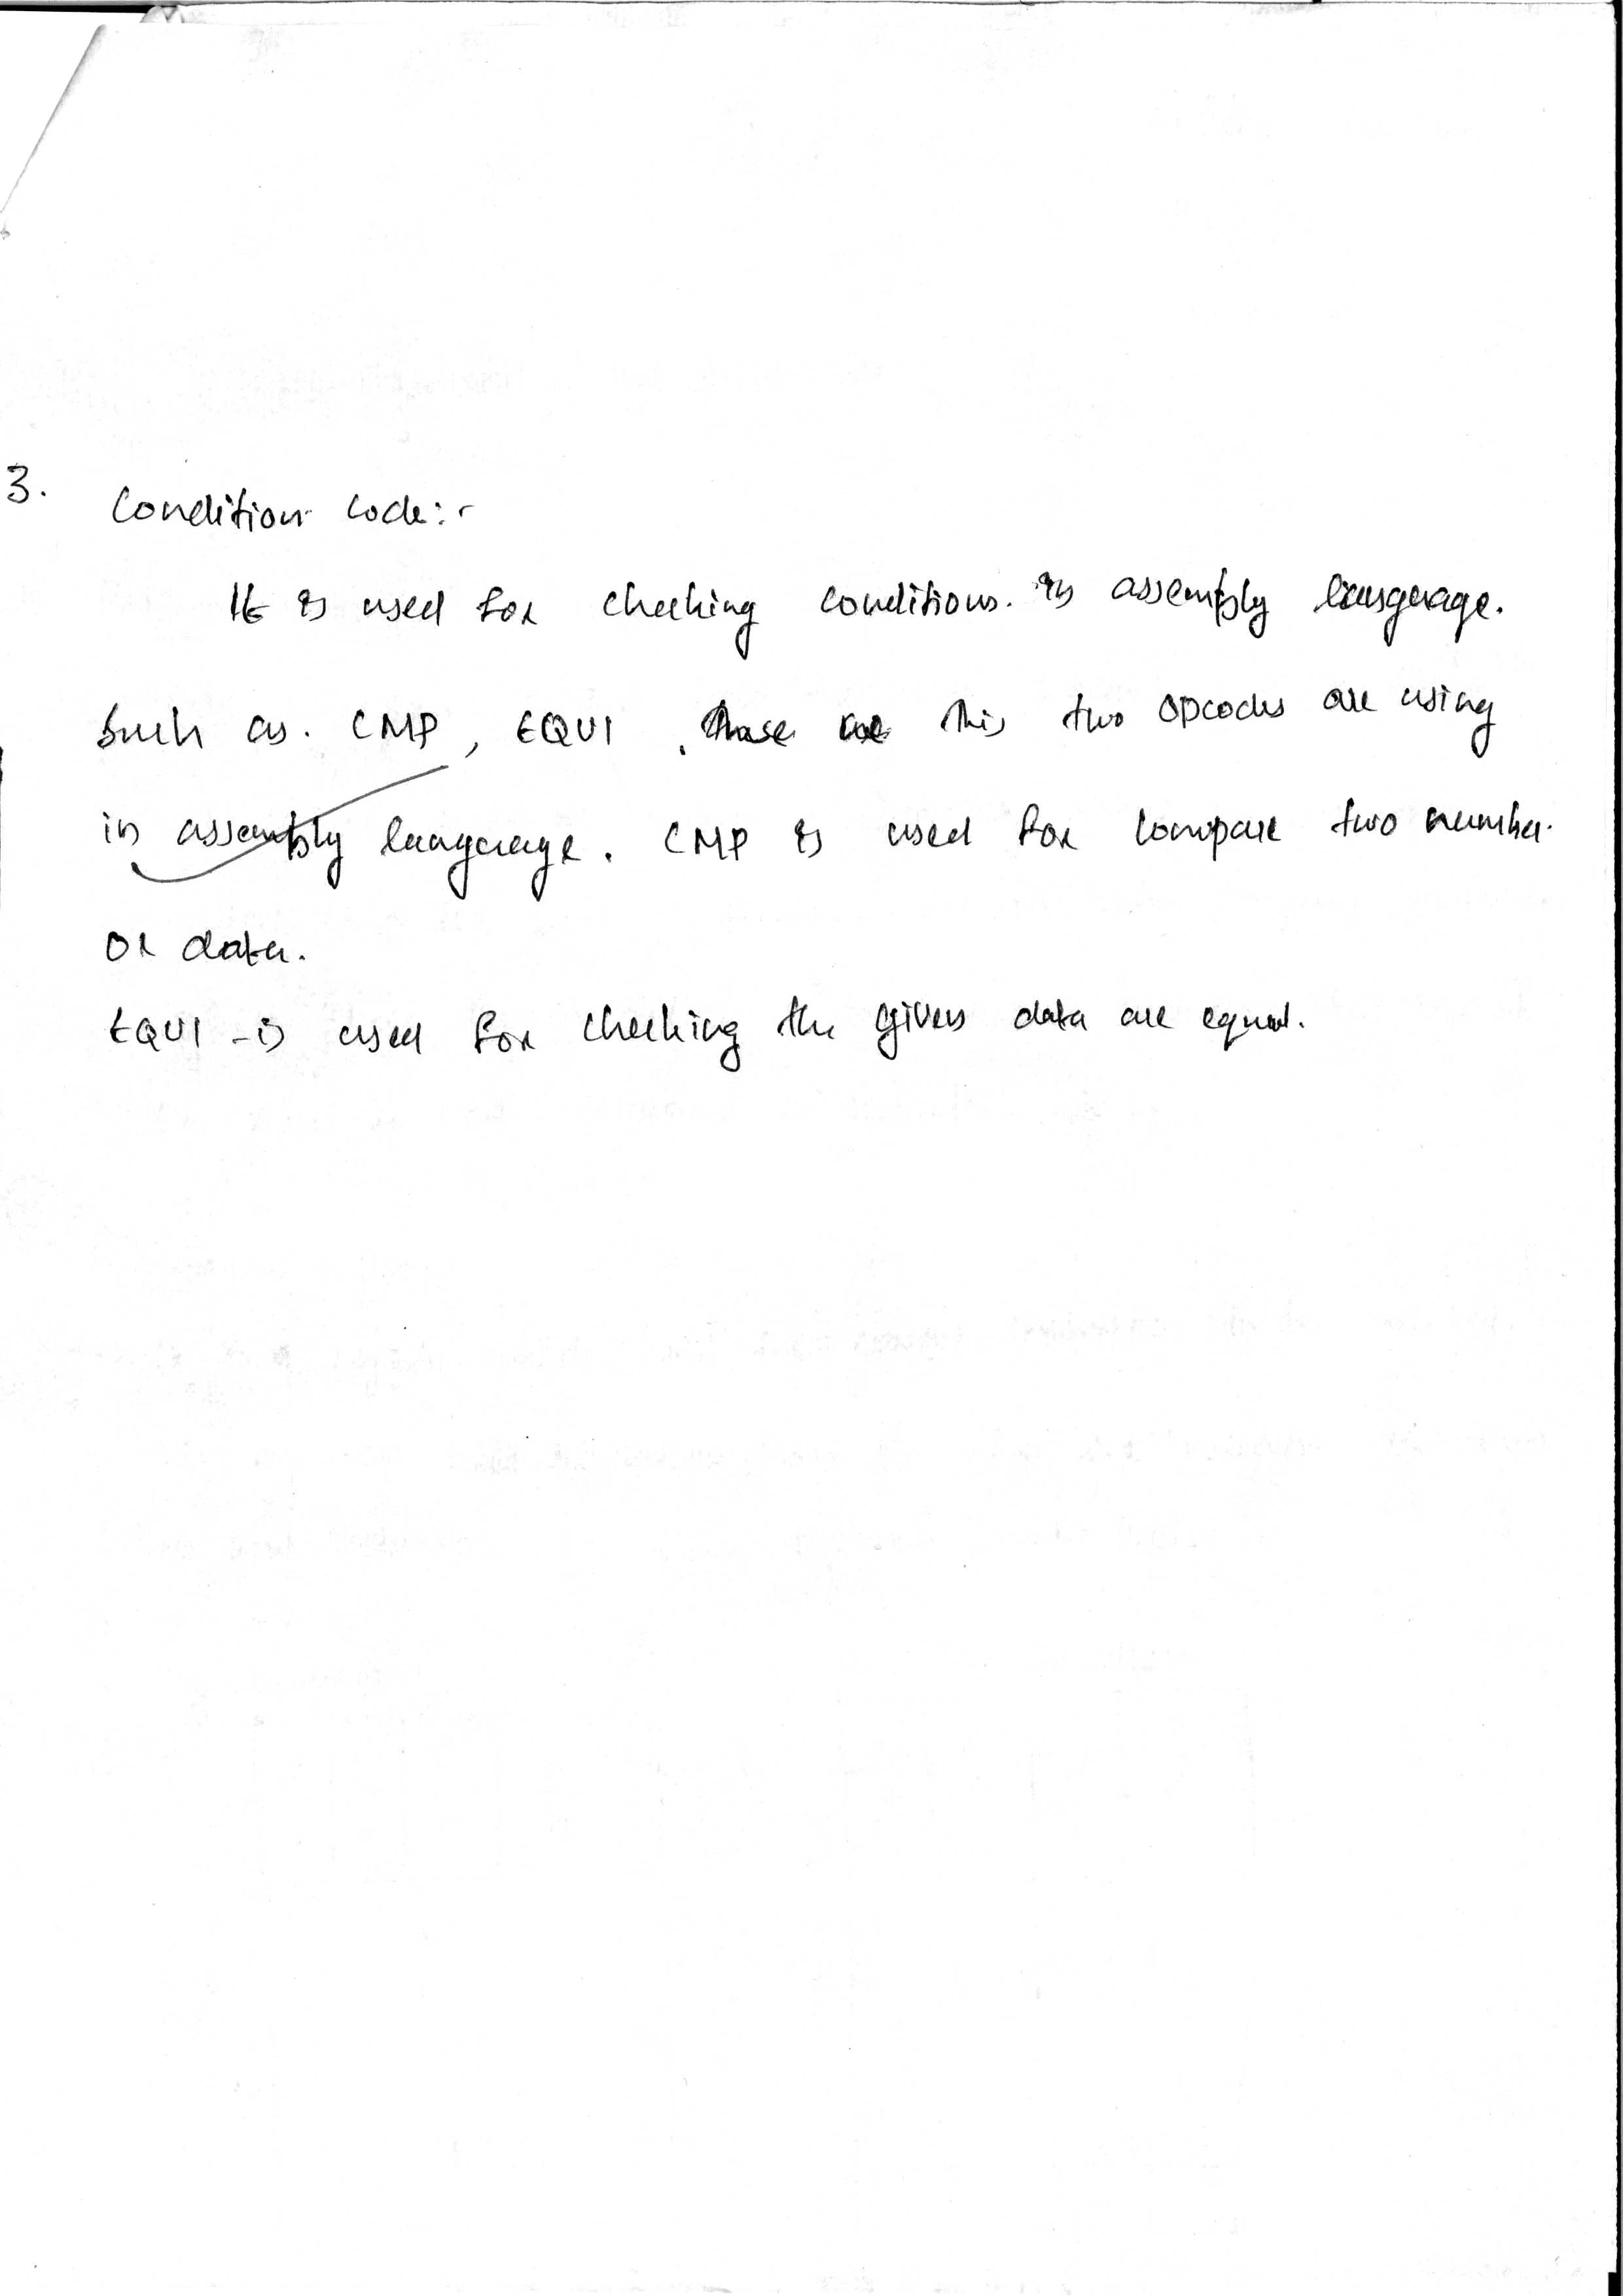 3. Condition code:-
It is used for checking conditions. in assembly language.
Such as. CMP, EQUI . this two opcodes are using
in assembly language. CMP is used for compare two number.
or data.
EQUI - is used for checking the given data are equal.